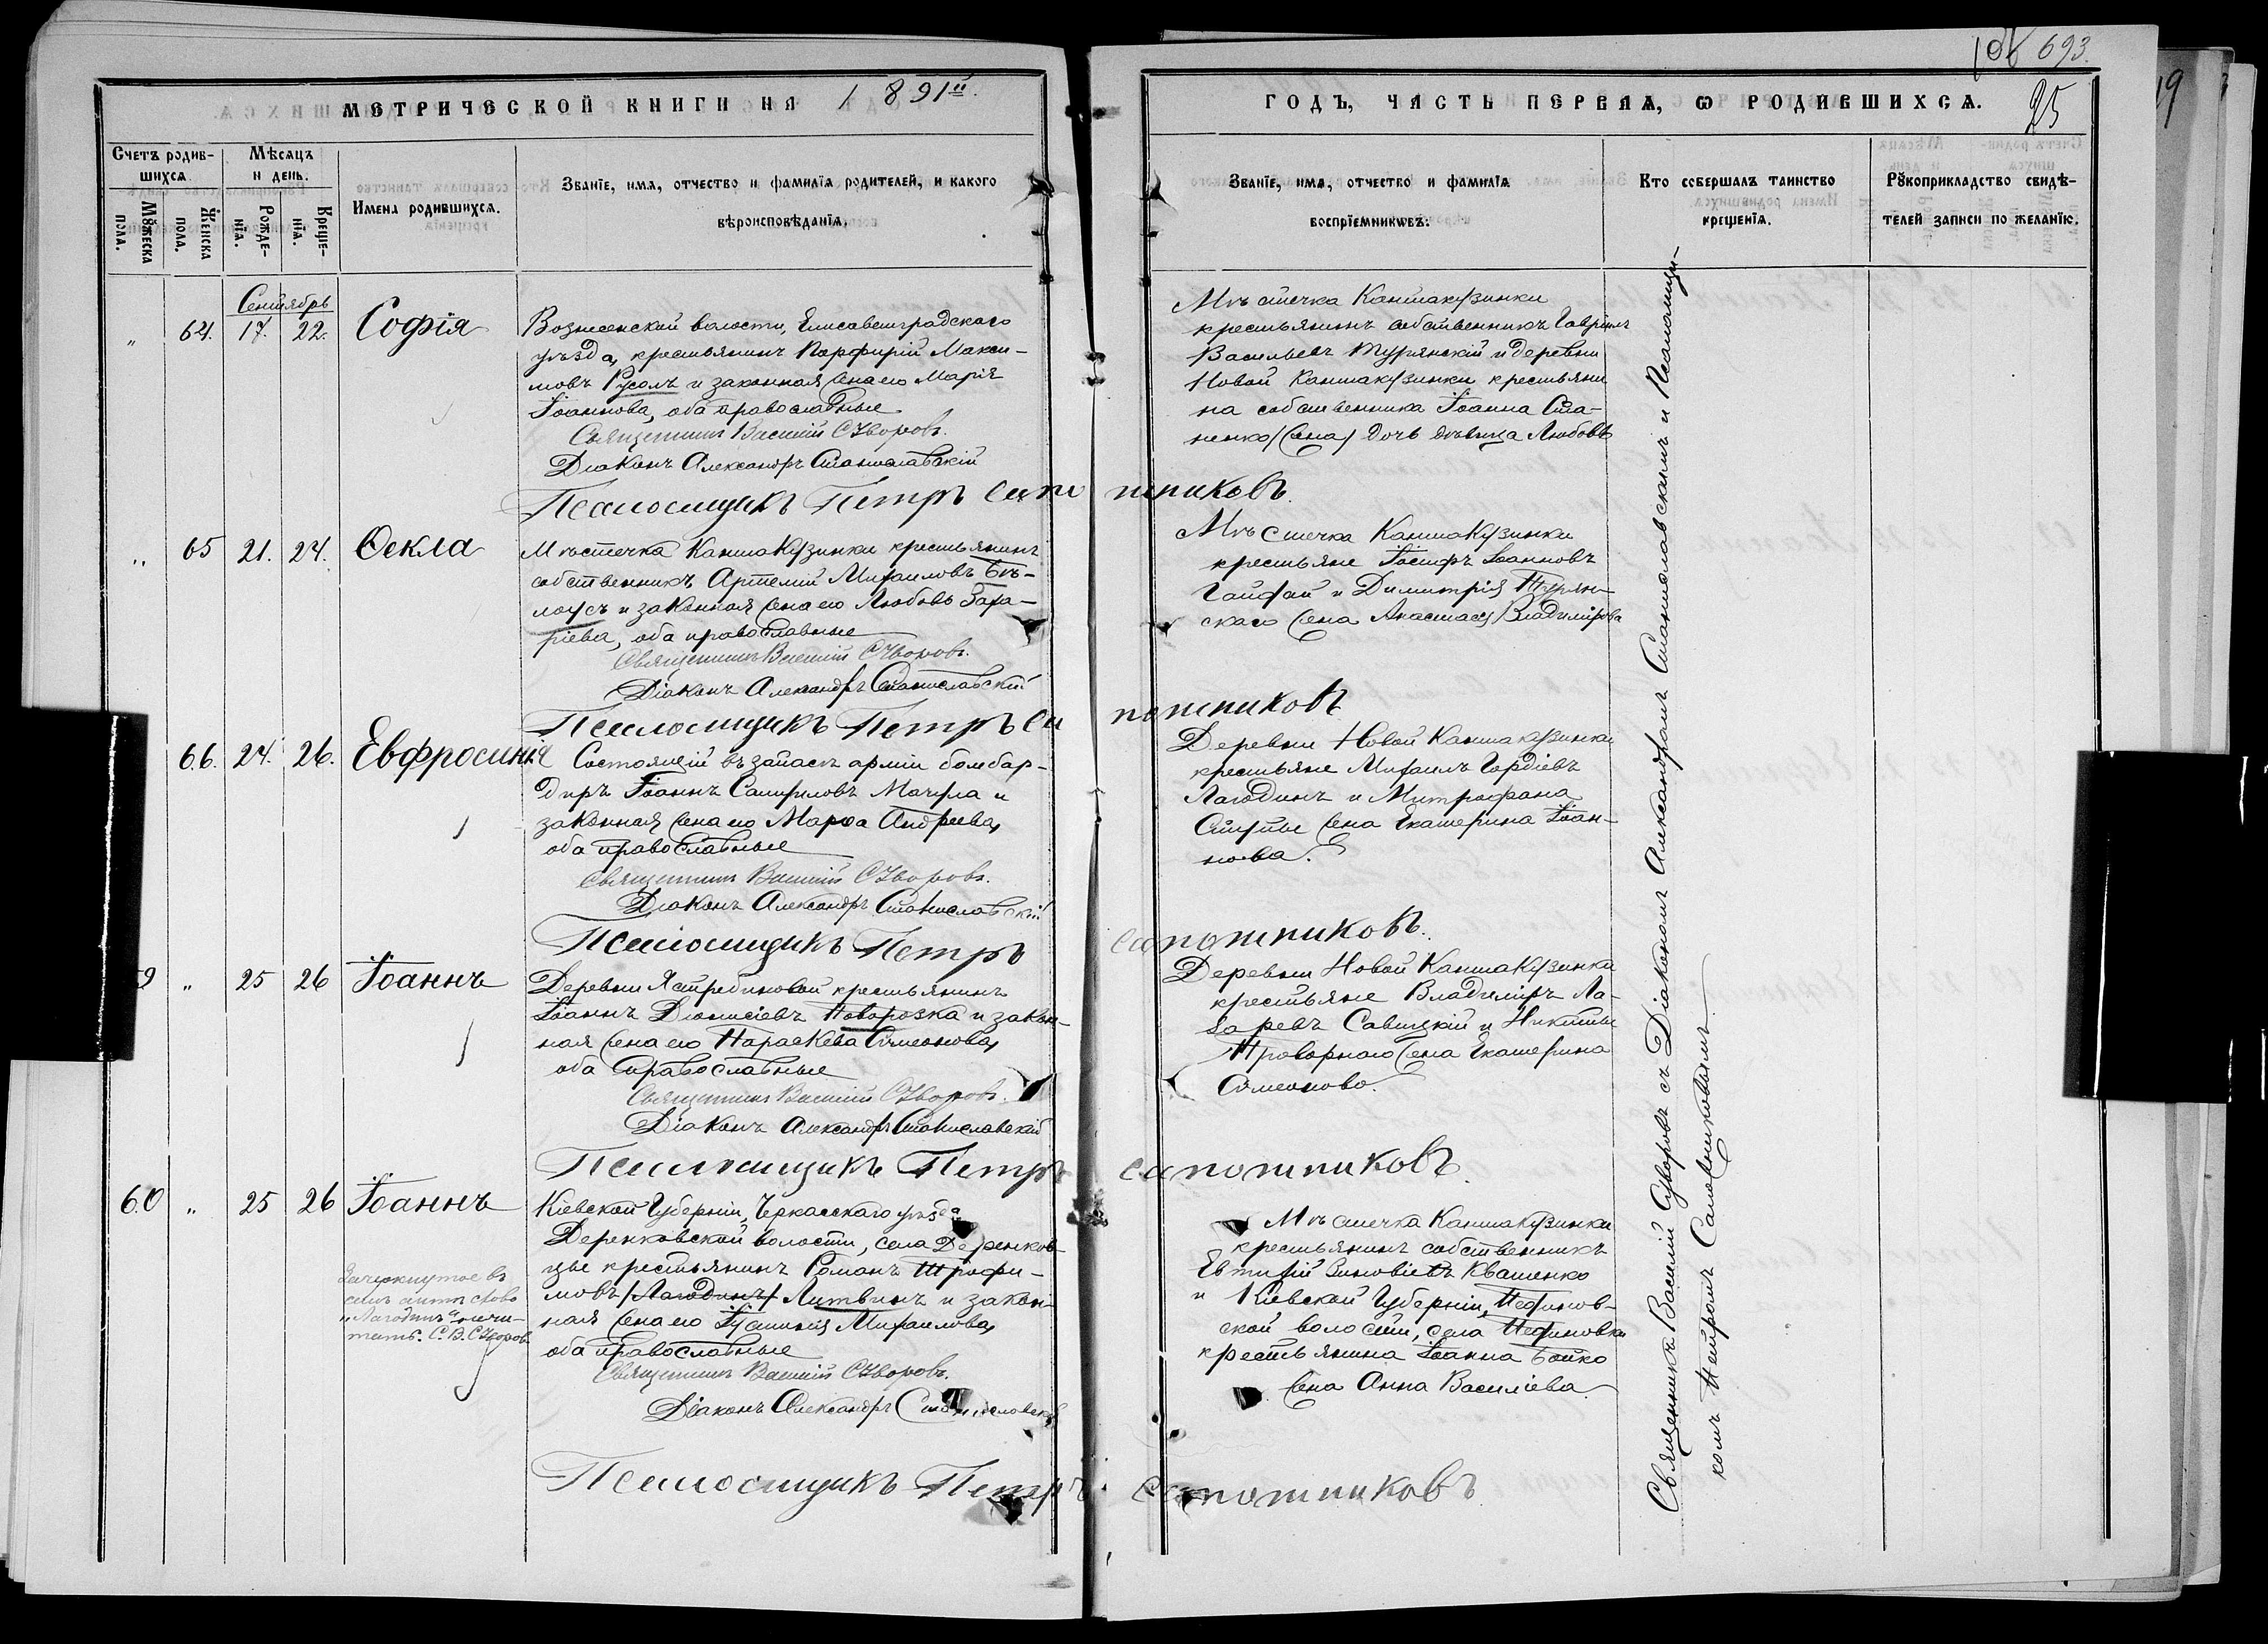 106 693.
25
19
МЕТРИЧЕСКОЙ КНИГИ НА 1891й.
ГОДЪ, ЧАСТЬ ПЕРВАЯ, Ѡ РОДИВШИХСѦ.
Счетъ родив-
шихсѧ.
Мꙋжеска
пола.
Женска
пола.
Мѣсѧцъ
и день.
Рожде-
нїѧ.
Креще-
нїѧ.
Имена родившихсѧ.
Званїе, имѧ, отчество и фамилїѧ родителей, и какого
вѣроисповѣданїѧ.
Званїе, имѧ, отчество и фамилїѧ
воспрїемникѡвъ.
Кто совершалъ таинство
крещенїѧ.
Рꙋкоприкладство свидѣ-
телей записи по желанїю.
Сентябрь
„ 64. 17. 22. Софія
Вознесенской волости, Елисаветградскаго
уѣзда, крестьянинъ Порфирій Макси-
мовъ Русолъ и законная жена его Марія
Іоаннова, оба православные
Священникъ Василій Суворовъ.
Діаконъ Александръ Станиславскій
Псаломщикъ Петръ Сапожниковъ.
Мѣстечка Кантакузинки
крестьянинъ собственникъ Гавріилъ
Васильевъ Турянскій и деревни
Новой Кантакузинки крестьяни
на собственника Іоанна Ста-
ненко (жена) дочь дѣвица Любовь
„ 65 21. 24. Ѳекла
Мѣстечка Кантакузинки крестьянинъ
собственникъ Артемій Михаиловъ Бѣ-
лоусъ и законная жена его Любовь Заха-
ріева, оба православные
Священникъ Василій Суворовъ.
Діаконъ Александръ Станиславскій
Псаломщикъ Петръ Сапожниковъ
Мѣстечка Кантакузинки
крестьяне Іосифъ Іоанновъ
Гайдай и Димитрія Турян-
скаго жена Анастасія Владимірова
66. 24. 26. Евфросинія
Состоящій въ запасѣ арміи бомбар-
диръ Іоаннъ Самуиловъ Мачула и
законная жена его Марѳа Андреева,
оба православные
Священникъ Василій Суворовъ.
Діаконъ Александръ Станиславскій
Псаломщикъ Петръ Сапожниковъ.
Деревни Новой Кантакузинки
крестьяне Михаилъ Гордіевъ
Лагодинъ и Митрофана
жена Екатерина Іоан-
нова.
9 „ 25 26 Іоаннъ
Деревни Ястребиновой крестьянинъ
Іоаннъ Діонисіевъ Поворозка и закон-
ная жена его Параскева Симеонова,
оба православные
Священникъ Василій Суворовъ.
Діаконъ Александръ Станиславскій
Псаломщикъ Петръ Сапожниковъ.
Деревни Новой Кантакузинки
крестьяне Владиміръ Ла-
заревъ Савицкій и Никиты
Проворнаго жена Екатерина
Симеонова.
60 „ 25 26 Іоаннъ
Зачеркнутое въ
семъ актѣ слово
„Лагодинъ“ не чи-
тать. С. В. Суворовъ
Кіевской Губерніи, Черкасскаго уѣзда
Деренковской волости, села Деренков-
це крестьянинъ Романъ Трофи-
мовъ (Лагодинъ) Литвинъ и закон-
ная жена его Іустинія Михаилова,
оба православные
Священникъ Василій Суворовъ.
Діаконъ Александръ Станиславскій
Псаломщикъ Петръ Сапожниковъ
Мѣстечка Кантакузинки
крестьянинъ собственникъ
Евтихій Зиновіевъ Квашенко
и Кіевской Губерніи,
ской волости, села
крестьянина Іоанна Бойко
жена Анна Василіева.
Священникъ Василій Суворовъ съ Діакономъ Александромъ Станиславскимъ и Псаломщи-
комъ Петромъ Сапожниковымъ.